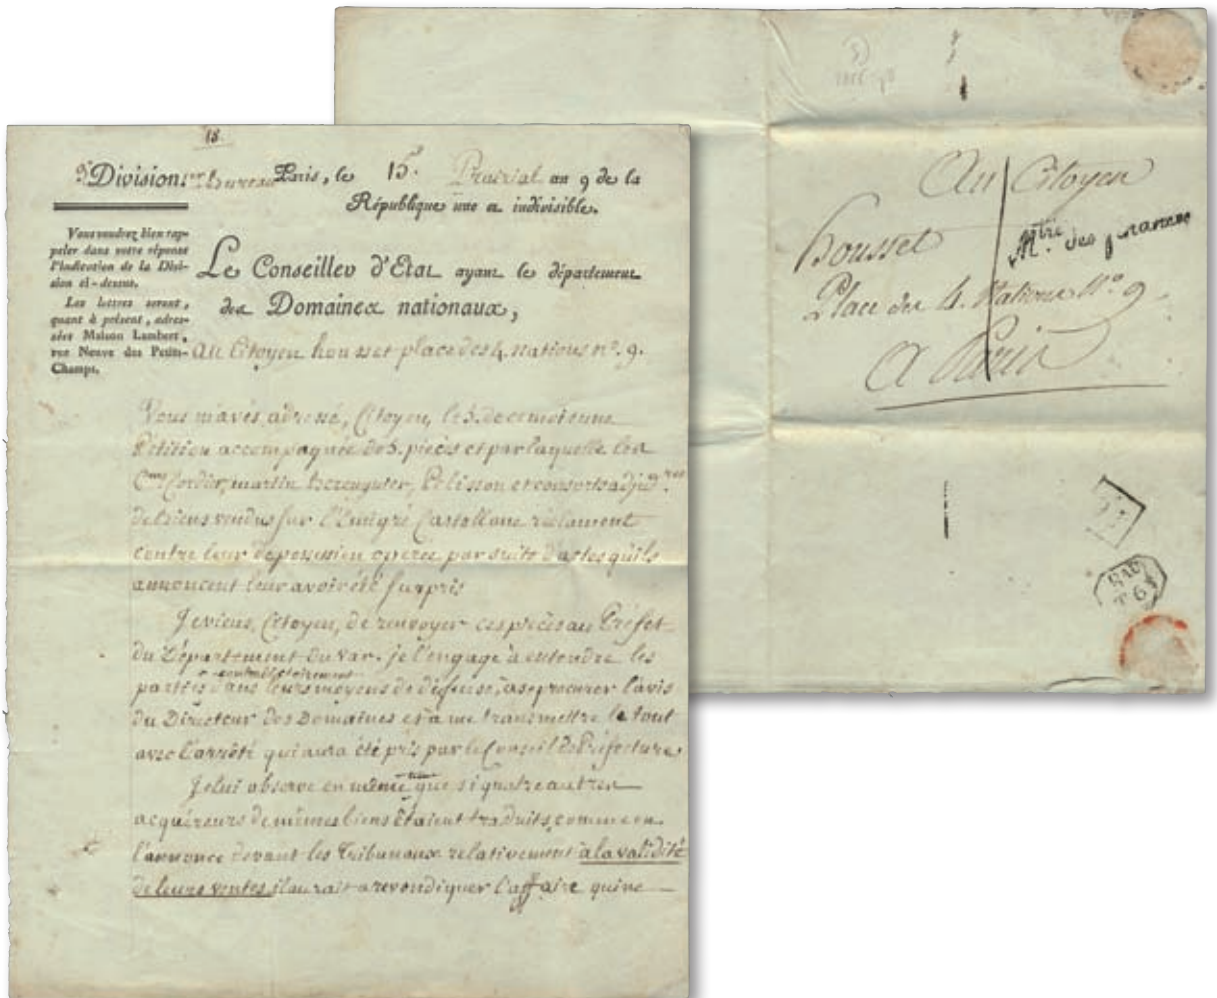 18
Division. Bureau Paris, le 15 Prairial an 9 de la
République une et indivisible.
Vous voudrez bien rap-
peler dans votre réponse
l'indication de la Divi-
sion ci-dessus.
Les lettres seront,
quant à présent, adres-
sées Maison Lambert,
rue Neuve des Petits-
Champs.
Le Conseiller d'Etat ayant le département
des Domaines nationaux,
Au Citoyen housset place des 4 Nations n.º 9.
Vous m'avés adressé, Citoyen, le 5. de ce mois une
Pétition accompagnée de 5. pièces et par laquelle les
C.ens Cordier, martin berenguier, Pelisson et consorts adjud.res
de biens vendus sur l'Emigré Castellane réclament
contre leur depossession operée par suite d'actes qu'ils
annoncent leur avoir été surpris
Je viens, Citoyen, de renvoyer ces pièces au Préfet
du Département du var. je l'engage à entendre les
parties contradictoirement dans leurs moyens de défense, à se procurer l'avis
du Directeur des Domaines et à me transmettre le tout
avec l'arrêté qui aura été pris par le Conseil de Préfecture
Je lui observe en même tems que si quatre autres
acquéreurs de mêmes biens étaient traduits, comme on
l'annonce devant les Tribunaux relativement à la validité
de leurs ventes, il aurait a revendiquer l'affaire qui ne
Au Citoyen
housset
M.tre des finances
Place des 4. Nations N.º 9
A Paris